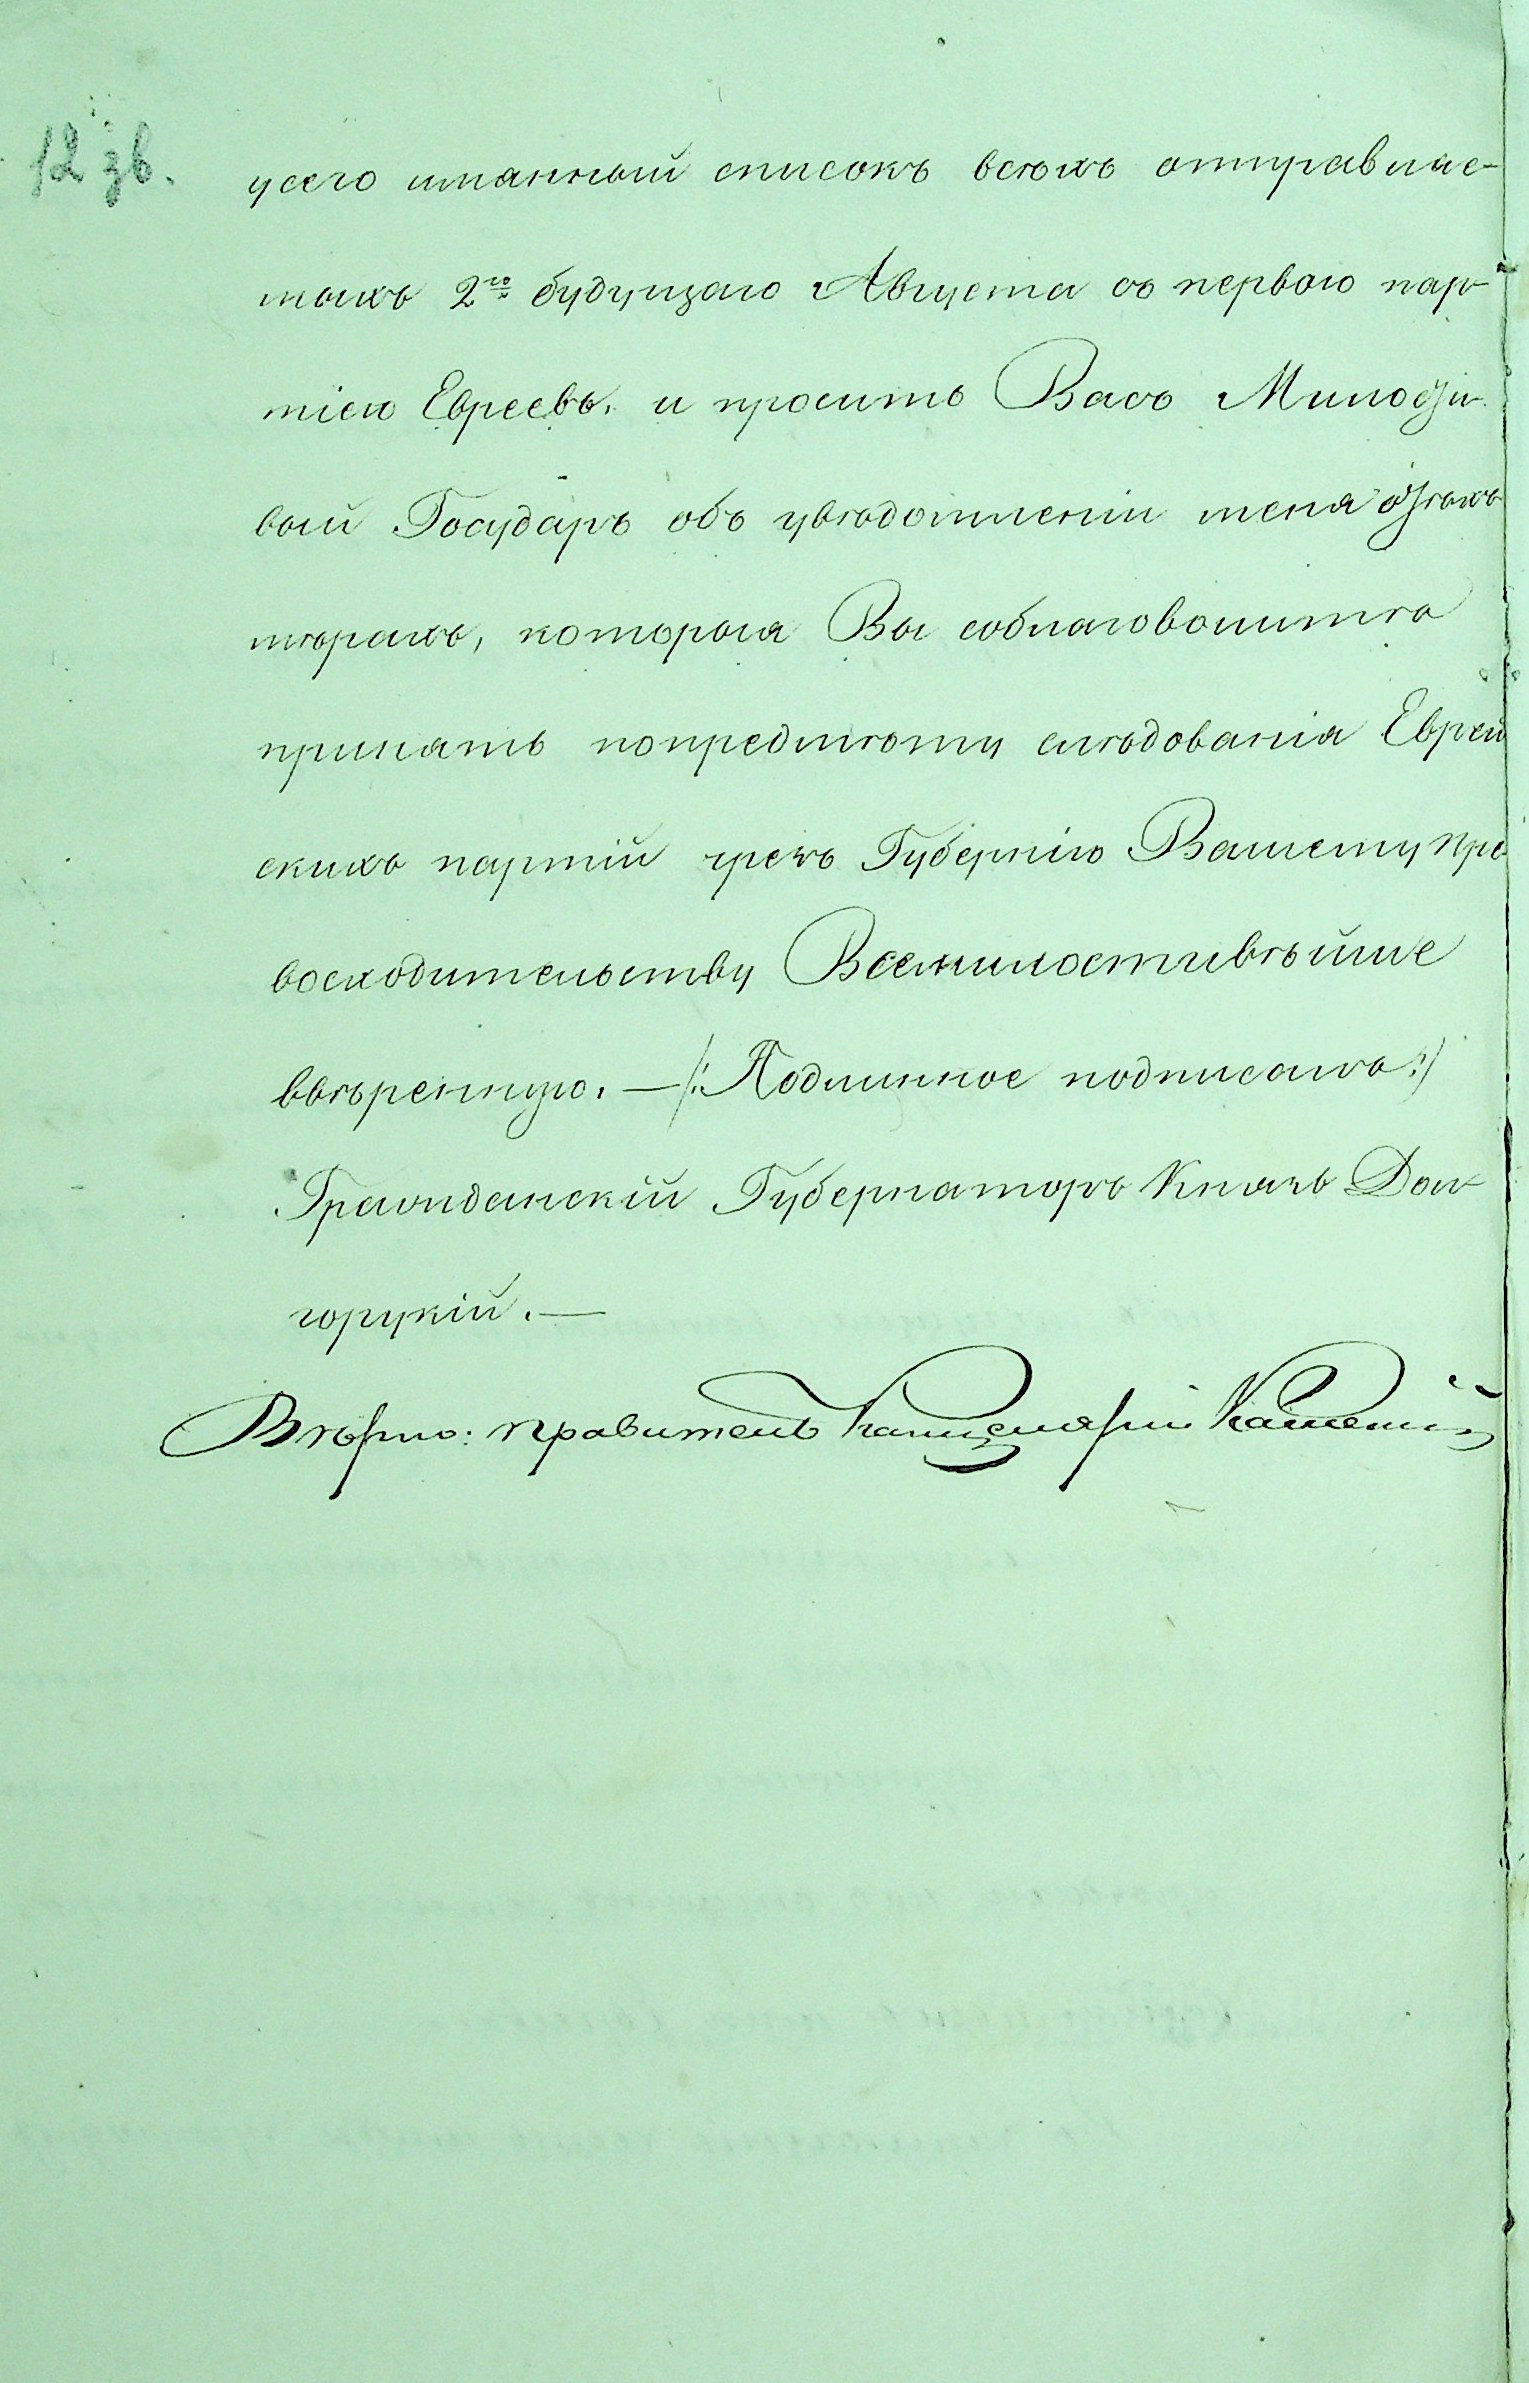 12 зв.
усего имянный списокъ всѣхъ отправляе-
мыхъ 2го будущаго Августа съ первою пар-
тіею Евреевъ, и просить Васъ Милости-
вый Государь объ увѣдомленіи меня о тѣхъ
мѣрахъ, которыя Вы соблаговолите
принять попредмѣту слѣдованія Еврей
скихъ партій чрезъ Губернію Вашему Пре
восходительству Всемилостивѣйше
ввѣренную. — /: Подлинное подписалъ :/
Гражданскій Губернаторъ Князь Дол-
горукій. —
Вѣрно: Правитель Канцеляріи